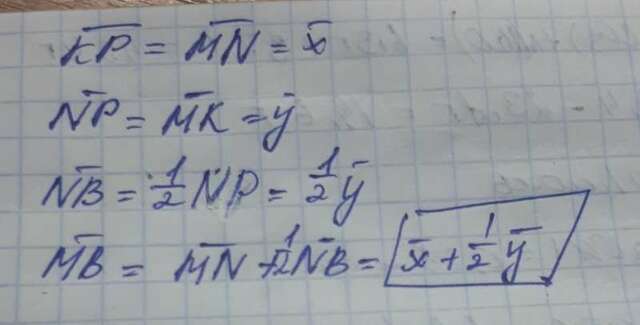 K̅P̅ = M̅N̅ = x̅
N̅P̅ = M̅K̅ = y̅
N̅B̅ = 1/2 NP = 1/2 y̅
M̅B̅ = M̅N̅ + 1/2 N̅B̅ = x̅ + 1/2 y̅